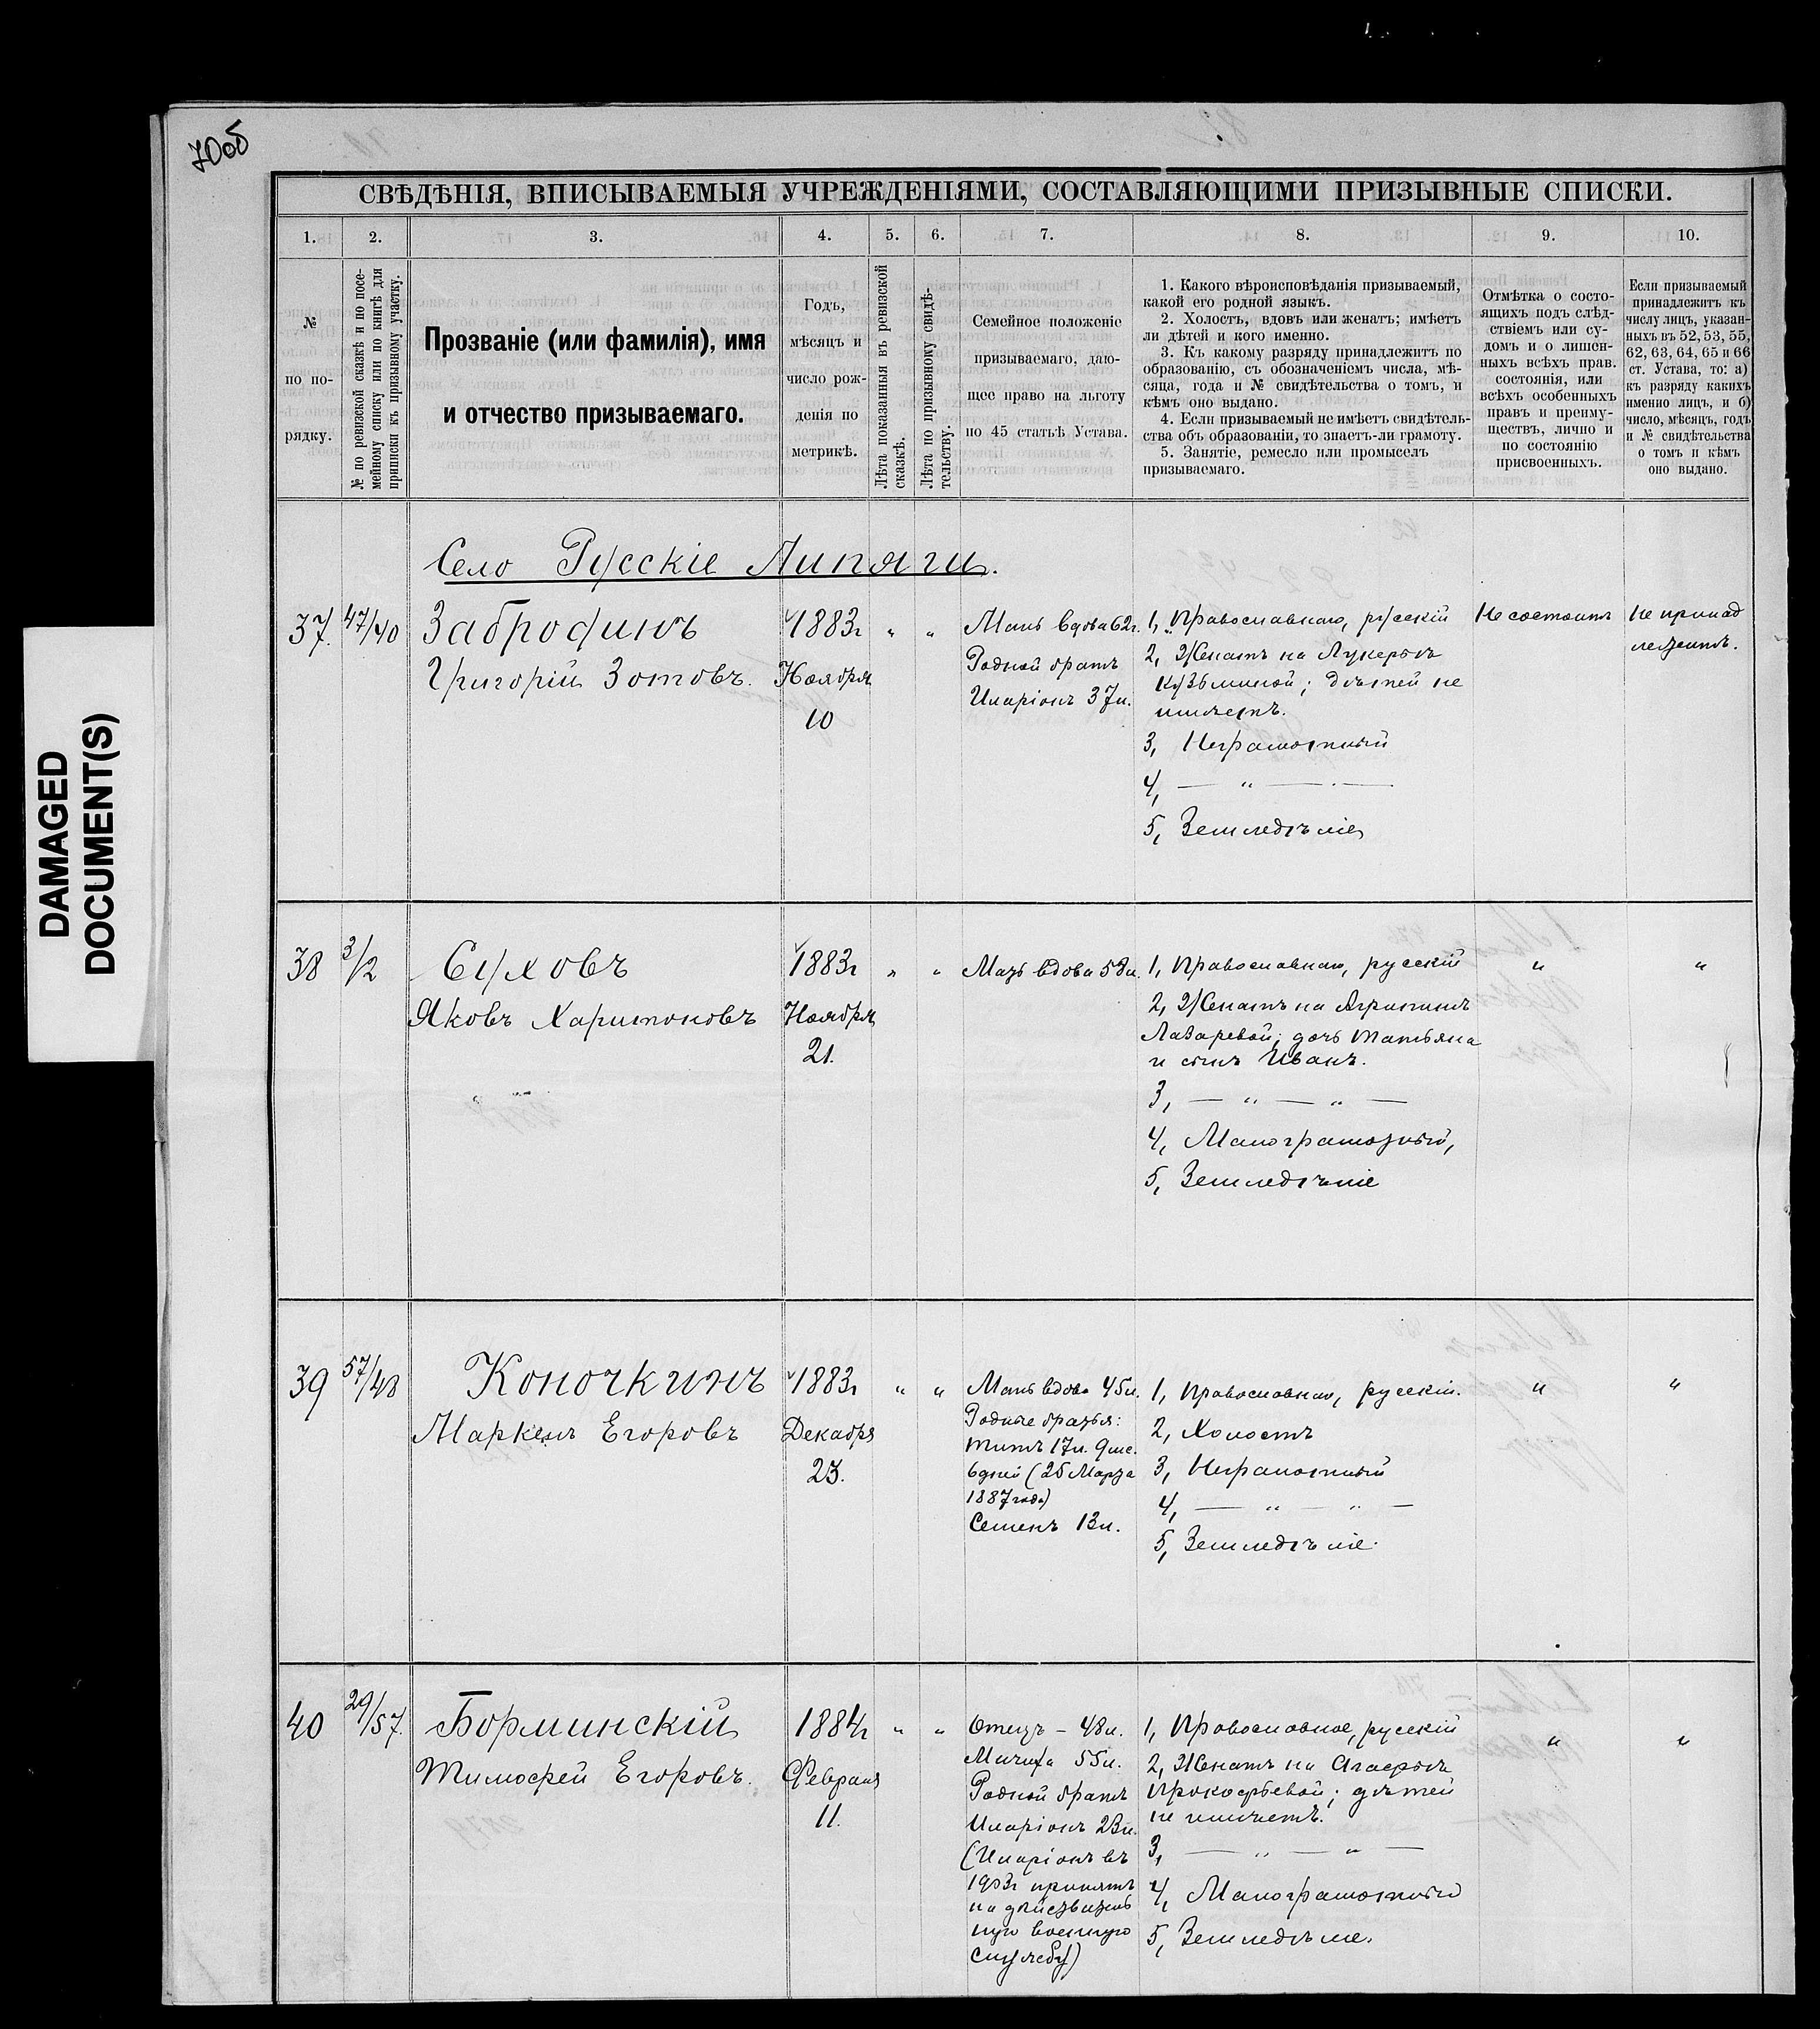 70об
СВѢДѢНІЯ, ВПИСЫВАЕМЫЯ УЧРЕЖДЕНІЯМИ, СОСТАВЛЯЮЩИМИ ПРИЗЫВНЫЕ СПИСКИ.
1.
2.
3.
4.
5.
6.
7.
8.
9.
10.
№
по по-
рядку.
№ по ревизской сказкѣ и по посе-
мейному списку или по книгѣ для
приписки къ призывному участку.
Прозваніе (или фамилія), имя
и отчество призываемаго.
Годъ,
мѣсяцъ и
число рож-
денія по
метрикѣ.
Лѣта показанныя въ ревизской
сказкѣ.
Лѣта по призывному свидѣ-
тельству.
Семейное положеніе
призываемаго, даю-
щее право на льготу
по 45 статьѣ Устава.
1. Какого вѣроисповѣданія призываемый,
какой его родной языкъ.
2. Холостъ, вдовъ или женатъ; имѣетъ
ли дѣтей и кого именно.
3. Къ какому разряду принадлежитъ по
образованію, съ обозначеніемъ числа, мѣ-
сяца, года и № свидѣтельства о томъ, и
кѣмъ оно выдано.
4. Если призываемый не имѣетъ свидѣтель-
ства объ образованіи, то знаетъ-ли грамоту.
5. Занятіе, ремесло или промыселъ
призываемаго.
Отмѣтка о состо-
ящихъ подъ слѣд-
ствіемъ или су-
домъ и о лишен-
ныхъ всѣхъ прав.
состоянія, или
всѣхъ особенныхъ
правъ и преиму-
ществъ, лично и
по состоянію
присвоенныхъ.
Если призываемый
принадлежитъ къ
числу лицъ, указан-
ныхъ въ 52, 53, 55,
62, 63, 64, 65 и 66
ст. Устава, то: а)
къ разряду какихъ
именно лицъ, и б)
число, мѣсяцъ, годъ
и № свидѣтельства
о томъ и кѣмъ
оно выдано.
Село Русскіе Липяги.
37.
47/40
Забродинъ
Григорій Зотовъ.
1883г
Ноября
10
"
"
Мать вдова 62г.
Родной братъ
Иларіонъ 37л.
1, Православнаго, русскій
2, Женатъ на Лукерьѣ
Кузьминой; дѣтей не
имѣетъ.
3, Неграмотный
4, — " — —
5, Земледѣліе
Не состоитъ
Не принад
лежитъ.
38
3/2
Суховъ
Яковъ Харитоновъ
1883г
Ноября
21.
"
"
Мать вдова 58л.
1, Православнаго, русскій
2, Женатъ на Агрипинѣ
Лазаревой; дочь Татьяна
и сынъ Иванъ.
3, — " — " —
4, Малограмотный,
5, Земледѣліе
"
"
39
57/48
Коночкинъ
Маркелъ Егоровъ
1883г
Декабря
23.
"
"
Мать вдова 45л.
Родные братья:
Титъ 17л. 9мс.
6 дней (25 Марта
1887 года)
Семенъ 13л.
1, Православнаго, русскій.
2, Холостъ
3, Неграмотный
4, — " — " —
5, Земледѣліе.
"
"
40
29/57.
Борминскій
Тимофей Егоровъ.
1884г
Февраля
11.
"
"
Отецъ – 48л.
Мачиха 55л.
Родной братъ
Иларіонъ 23л.
(Иларіонъ въ
1903г принятъ
на дѣйствитель
ную военную
службу)
1, Православное, русскій
2, Женатъ на Агафьѣ
Прокофьевой; дѣтей
не имѣетъ.
3, — " — " —
4, Малограмотный
5, Земледѣліе.
"
"
DAMAGED
DOCUMENT(S)